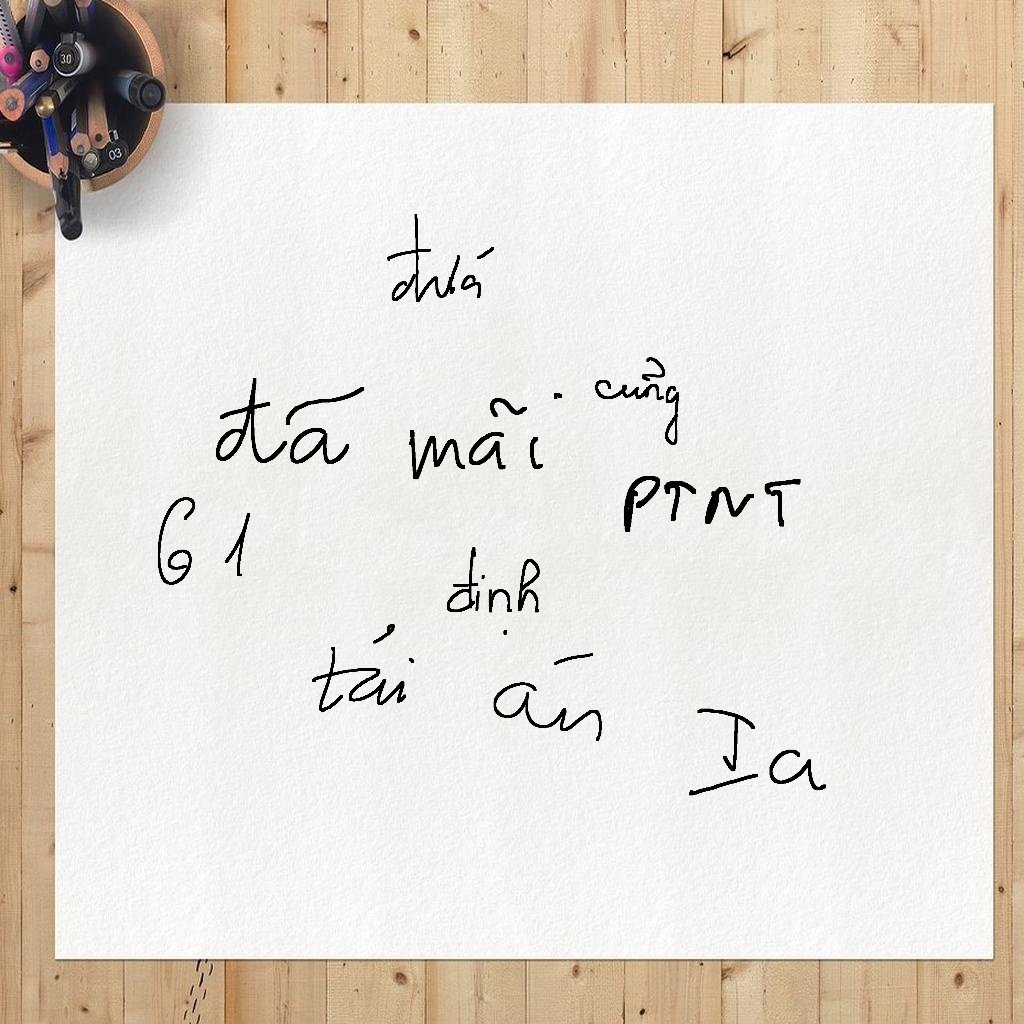 đứa
đã mãi cũng
PTNT
61
định
tái án
Ia